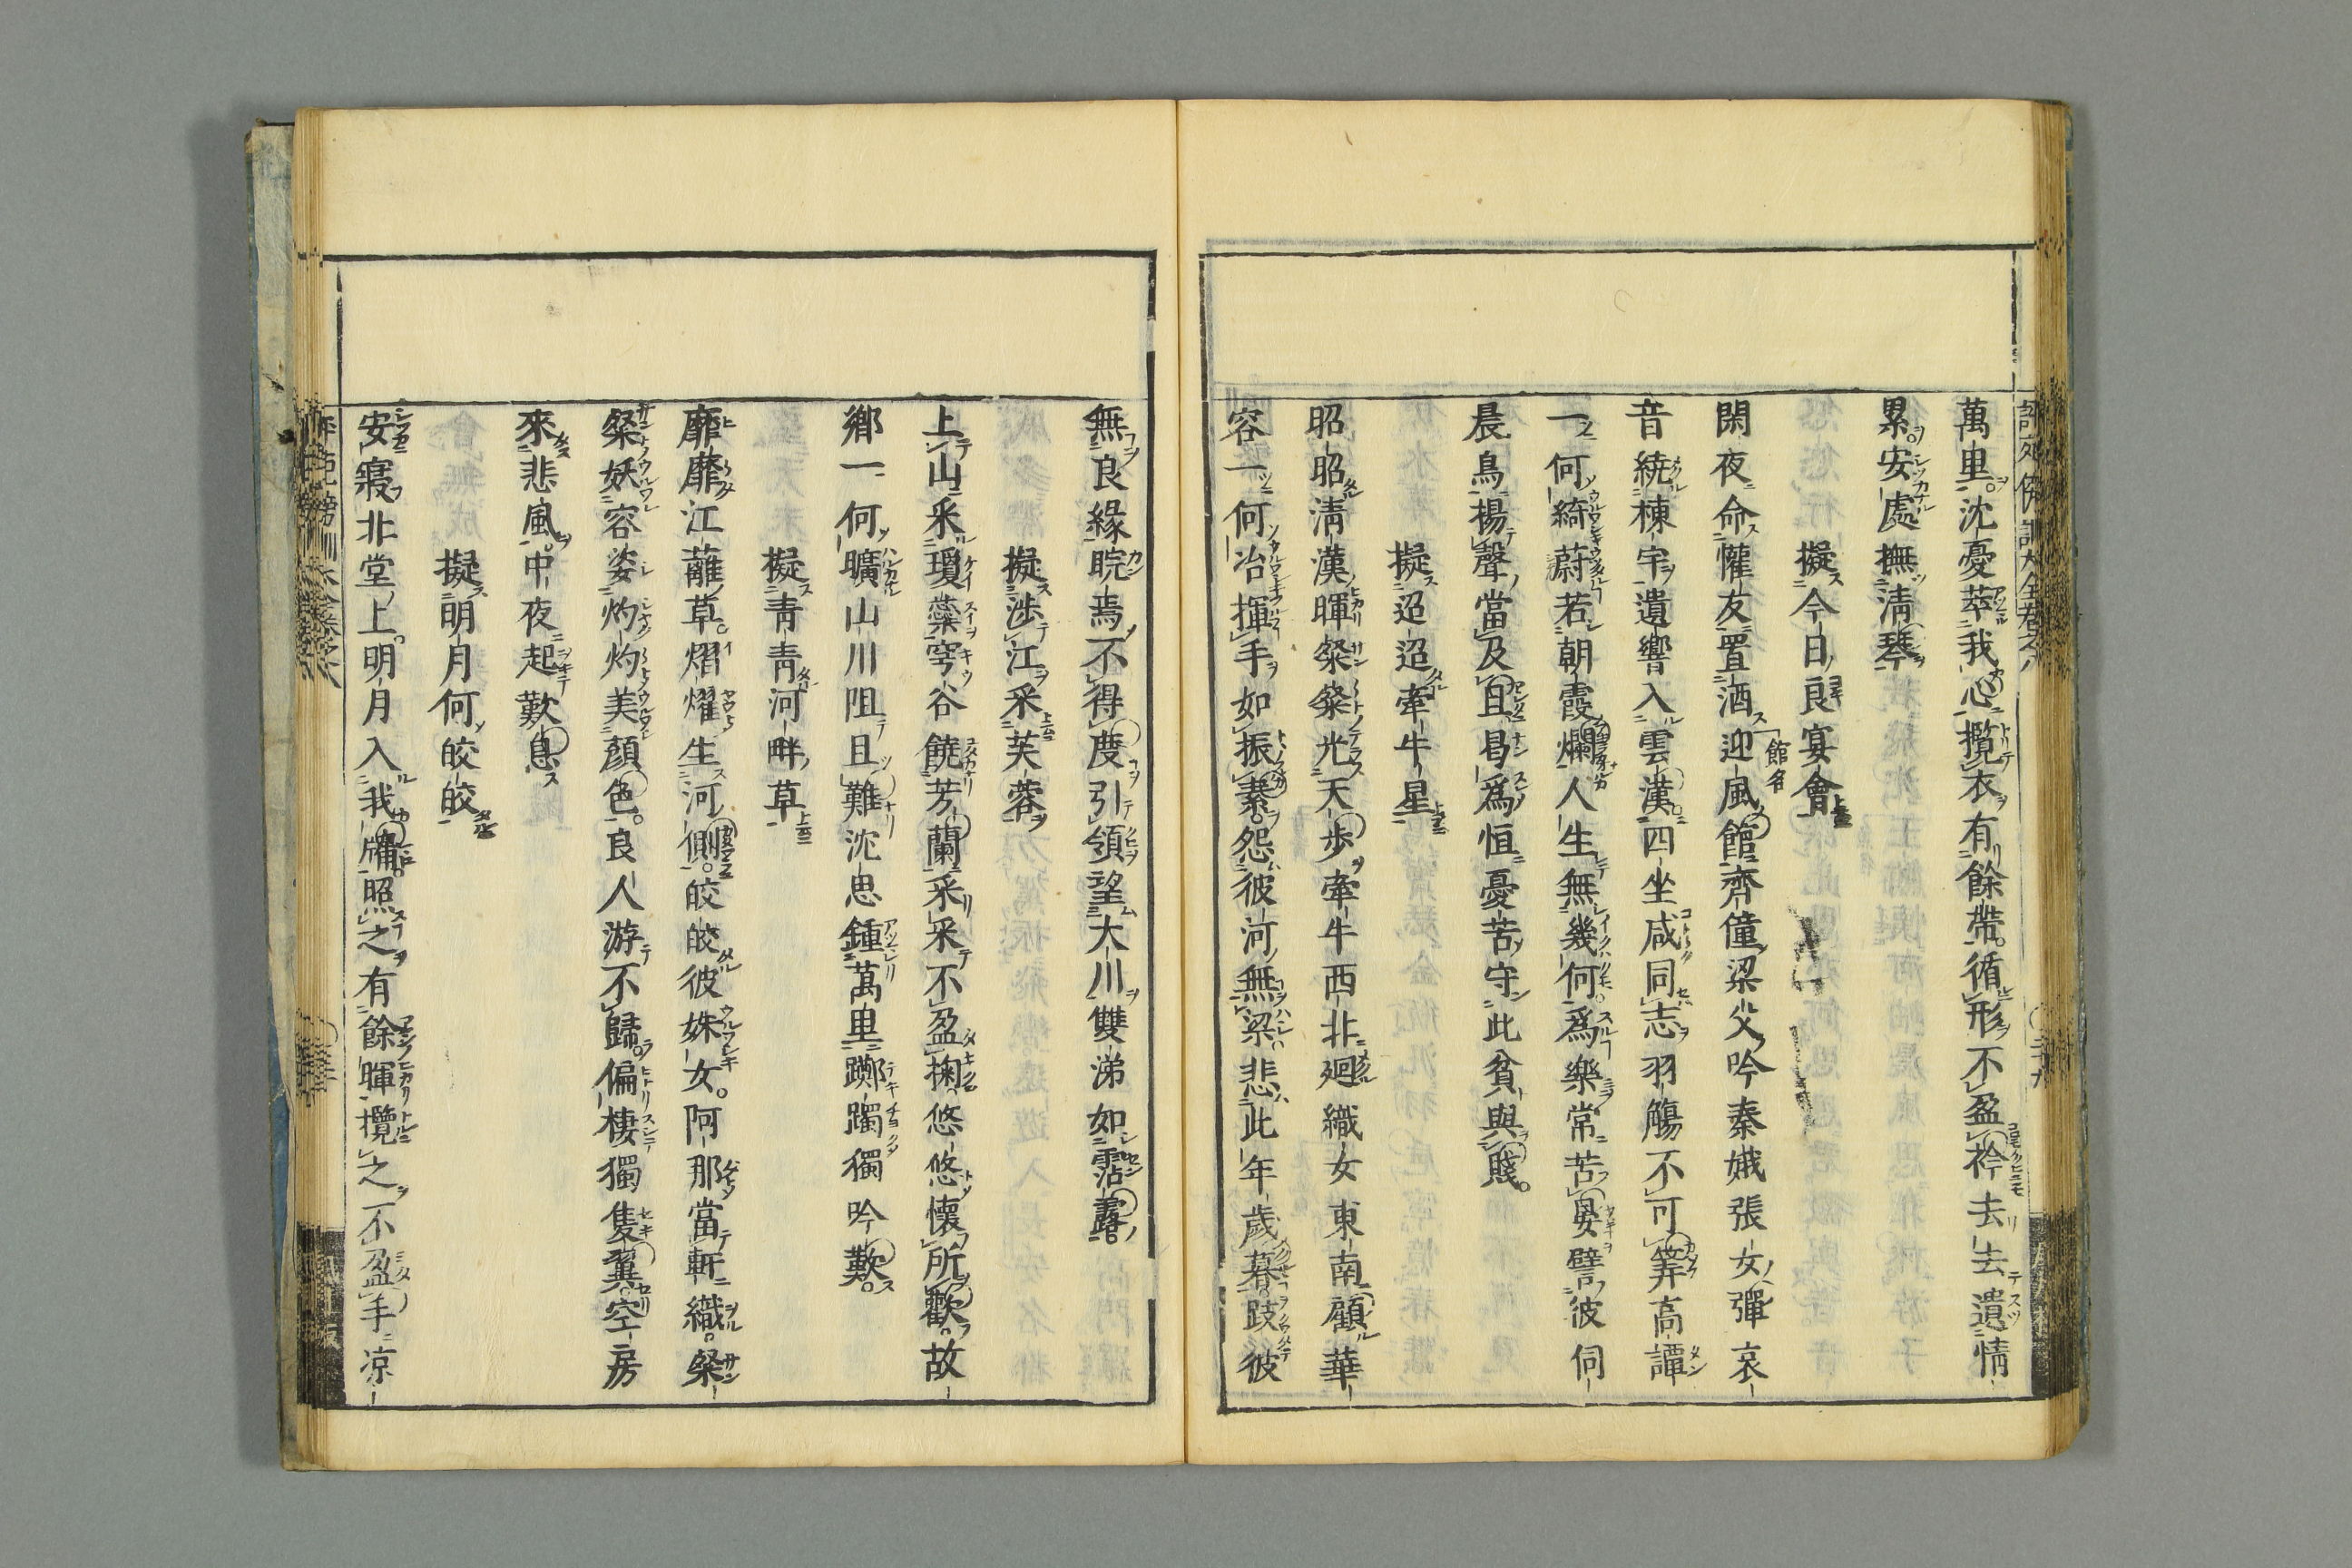 萬里沈憂萃我心攬衣有餘帶循形不盈衿去去遺情
累安處撫淸琴
擬今日良宴會
閑夜命懽友置酒迎風館齊僮梁父吟秦娥張女彈哀
館名
音繞棟宇遺響入雲漢四坐咸同志羽觴不可筭高譚
一何綺蔚若朝霞爛人生無幾何爲樂常苦晏譬彼伺
晨鳥揚聲當及且曷爲恒憂苦守此貧與賤
擬迢迢牽牛星
昭昭淸漢暉粲粲光天步牽牛西北廻織女東南顧華
容一何冶揮手如振素怨彼河無梁悲此年歲暮跂彼
無良緣睆焉不得度引領望大川雙涕如霑露
擬涉江采芙蓉
上山采瓊蘂穹谷饒芳蘭采采不盈掬悠悠懷所歡故
鄉一何曠山川阻且難沈思鍾萬里躑躅獨吟歎
擬靑靑河畔草
靡靡江蘺草熠燿生河側皎皎彼姝女阿那當軒織粲
粲妖容姿灼灼美顏色良人游不歸偏棲獨隻翼空房
來悲風中夜起歎息
擬明月何皎皎
安寢北堂上明月入我牖照之有餘暉攬之不盈手凉